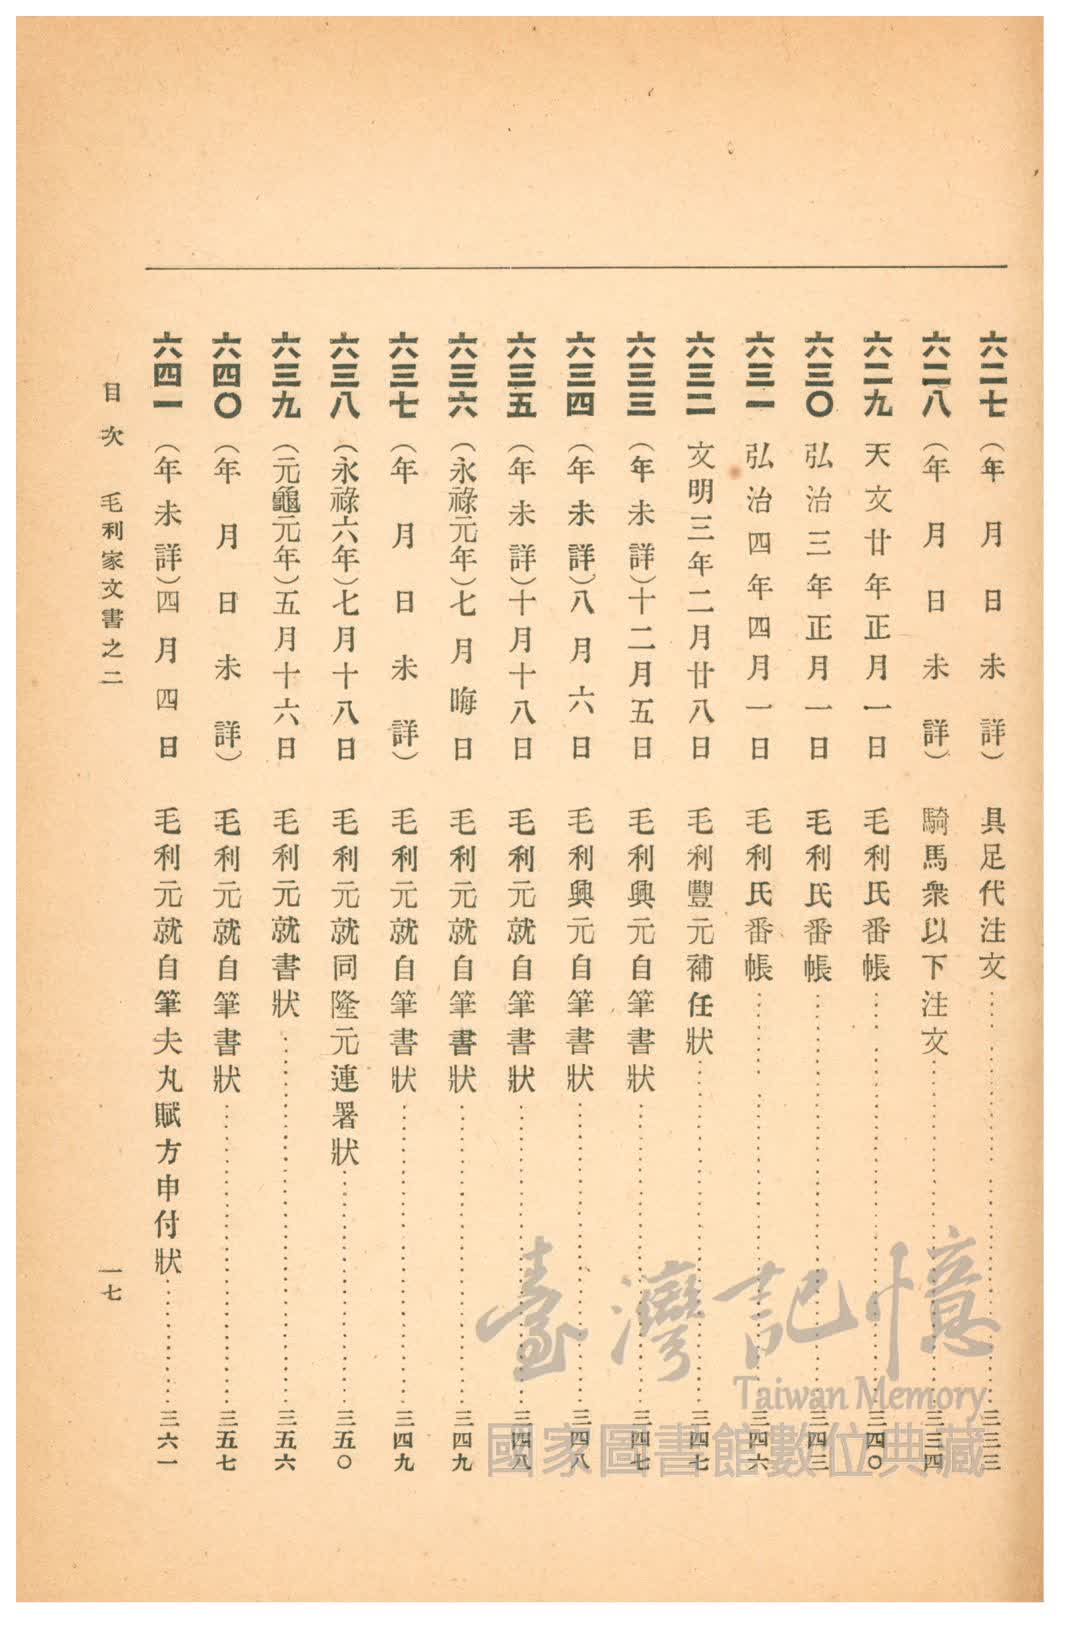 六二七 (年月日未詳) 具足代注文……三三三
六二八 (年月日未詳) 騎馬衆以下注文……三三四
六二九 天文廿年正月一日 毛利氏番帳……三四〇
六三〇 弘治三年正月一日 毛利氏番帳……三四三
六三一 弘治四年四月一日 毛利氏番帳……三四六
六三二 文明三年二月廿八日 毛利豐元補任狀……三四七
六三三 (年未詳)十二月五日 毛利興元自筆書狀……三四七
六三四 (年未詳)八月六日 毛利興元自筆書狀……三四八
六三五 (年未詳)十月十八日 毛利元就自筆書狀……三四八
六三六 (永祿元年)七月晦日 毛利元就自筆書狀……三四九
六三七 (年月日未詳) 毛利元就自筆書狀……三四九
六三八 (永祿六年)七月十八日 毛利元就同隆元連署狀……三五〇
六三九 (元龜元年)五月十六日 毛利元就書狀……三五六
六四〇 (年月日未詳) 毛利元就自筆書狀……三五七
六四一 (年未詳)四月四日 毛利元就自筆夫丸賦方申付狀……三六一
目次 毛利家文書之二 一七
臺灣記憶
Taiwan Memory
國家圖書館數位典藏